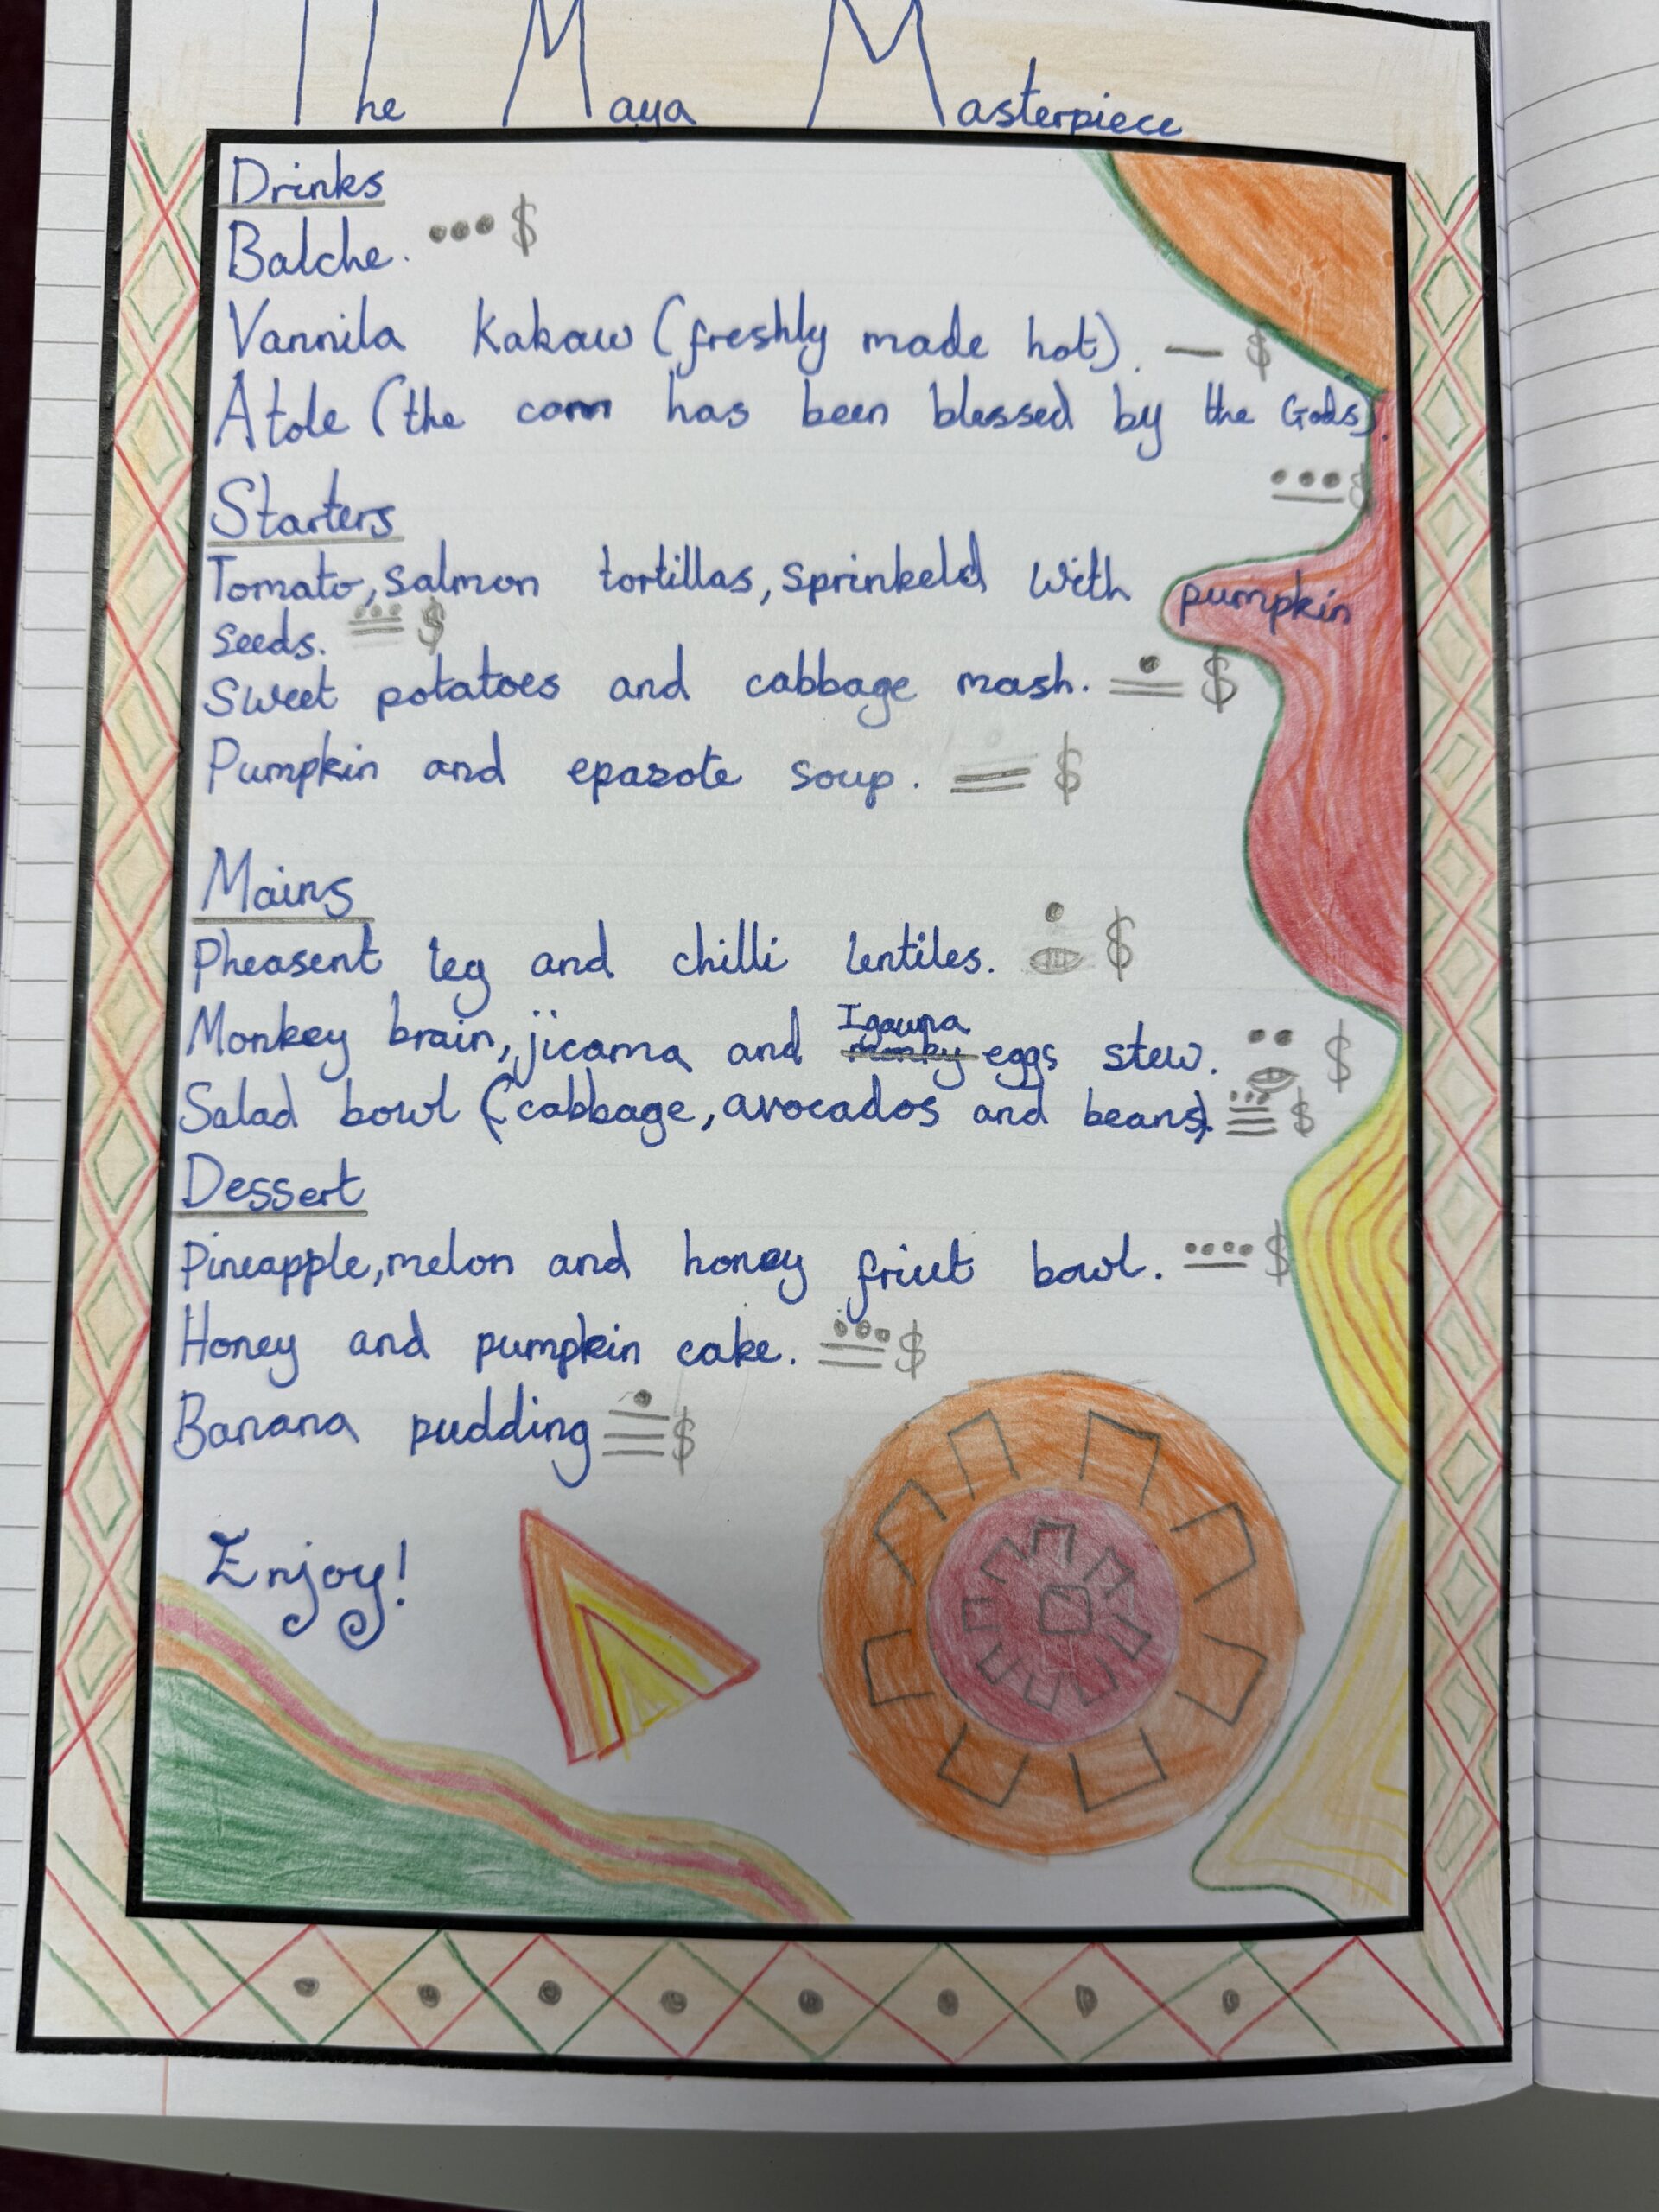 The Maya Masterpiece
Drinks
Balche. ••• $
Vannila Kakaw (freshly made hot). — $
Atole (the corn has been blessed by the Gods).
$
Starters
Tomato, salmon tortillas, sprinkeld with pumpkin
seeds. $
Sweet potatoes and cabbage mash. $
Pumpkin and epazote soup. $
Mains
Pheasent leg and chilli lentiles. $
Igauna
Monkey brain, jicama and monky eggs stew. $
Salad bowl (cabbage, avocados and beans). $
Dessert
Pineapple, melon and honey friut bowl. $
Honey and pumpkin cake. $
Banana pudding $
Enjoy!